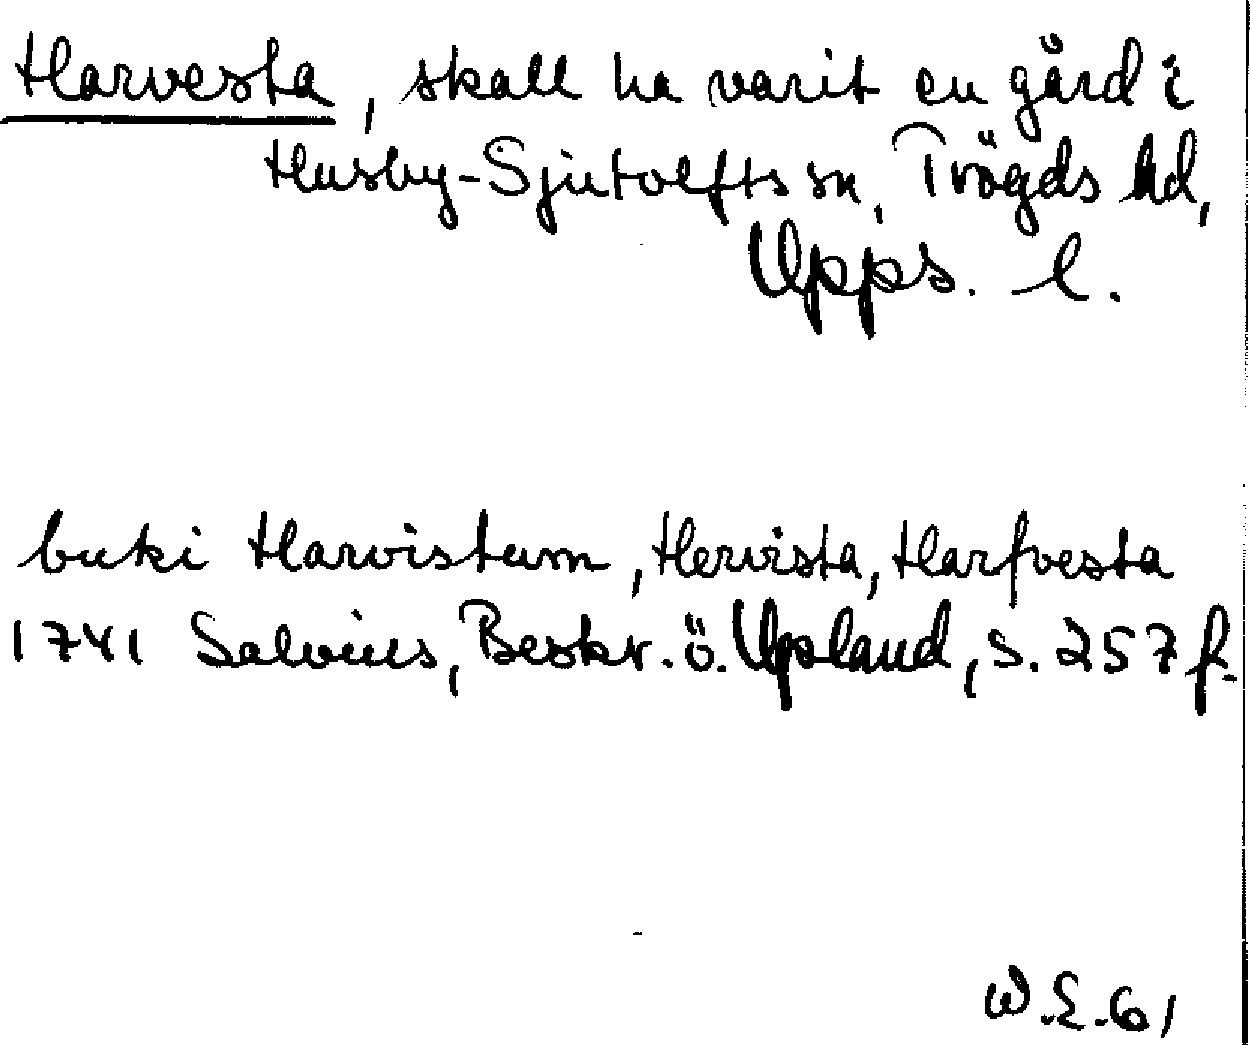 Harvesta, skall ha varit en gård i
Husby-Sjutolfts sn, Trögds hd,
Upps. l.
buki Harvistum, Hervista, Harfvesta
1741 Salvius, Beskr. ö. Upland, s. 257 f.
W.E. 61